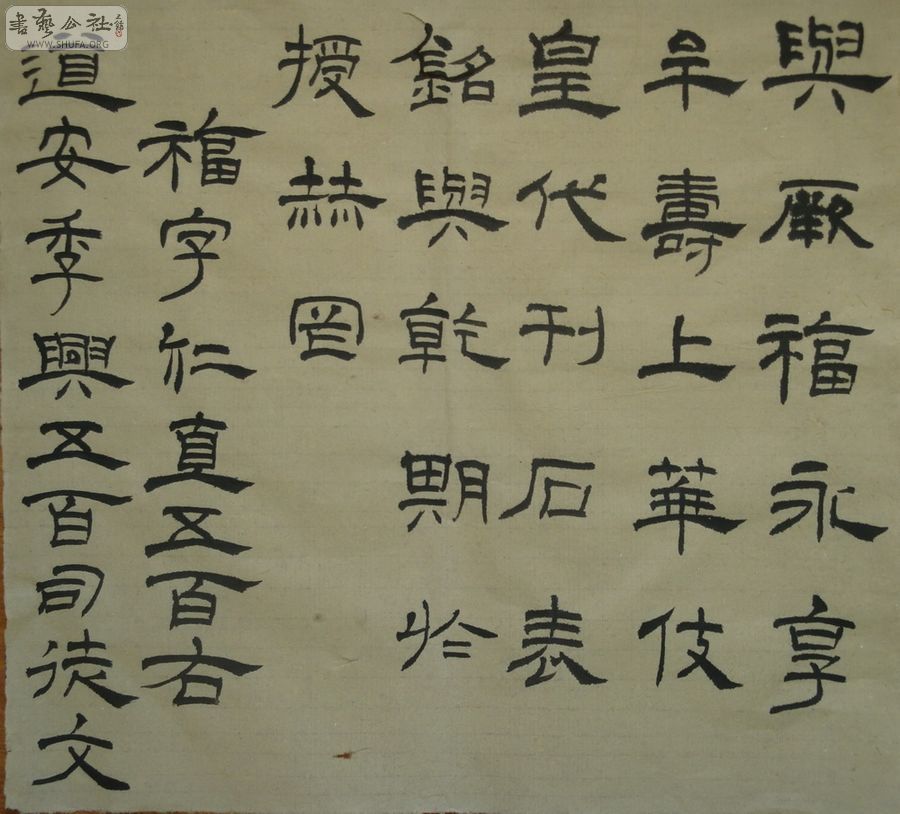 書藝公社
WWW.SHUFA.ORG
與厥福永享
牟壽上華伎
皇代刊石表
銘與乾期於
授赫罔
福字仁直五百右
道安季興五百司徒文